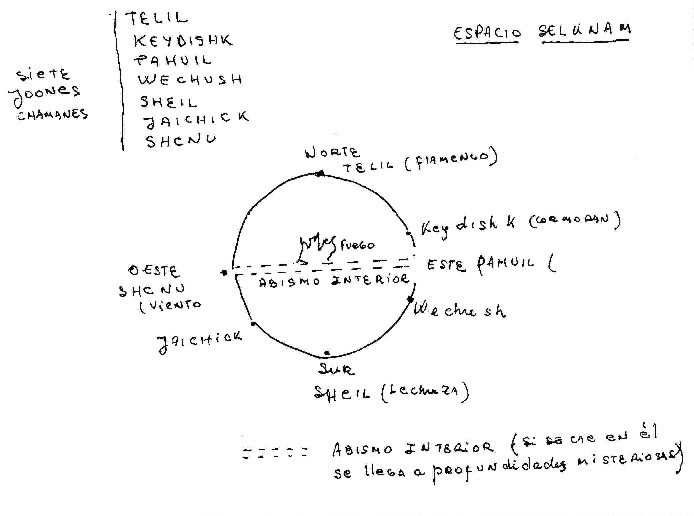 ESPACIO SELKNAM
SIETE
JOONES
CHAMANES
TELIL
KEYDISHK
PAHUIL
WECHUSH
SHEIL
JAICHICK
SHCNU
NORTE
TELIL (FLAMENCO)
Keydishk (CORMORAN)
FUEGO
ESTE PAHUIL (
ABISMO INTERIOR
OESTE
SHCNU
(VIENTO
Wechush
JAICHICK
SUR
SHEIL (LECHUZA)
ABISMO INTERIOR (SI SE CAE EN ÉL
se llega a profundidades misteriosas)